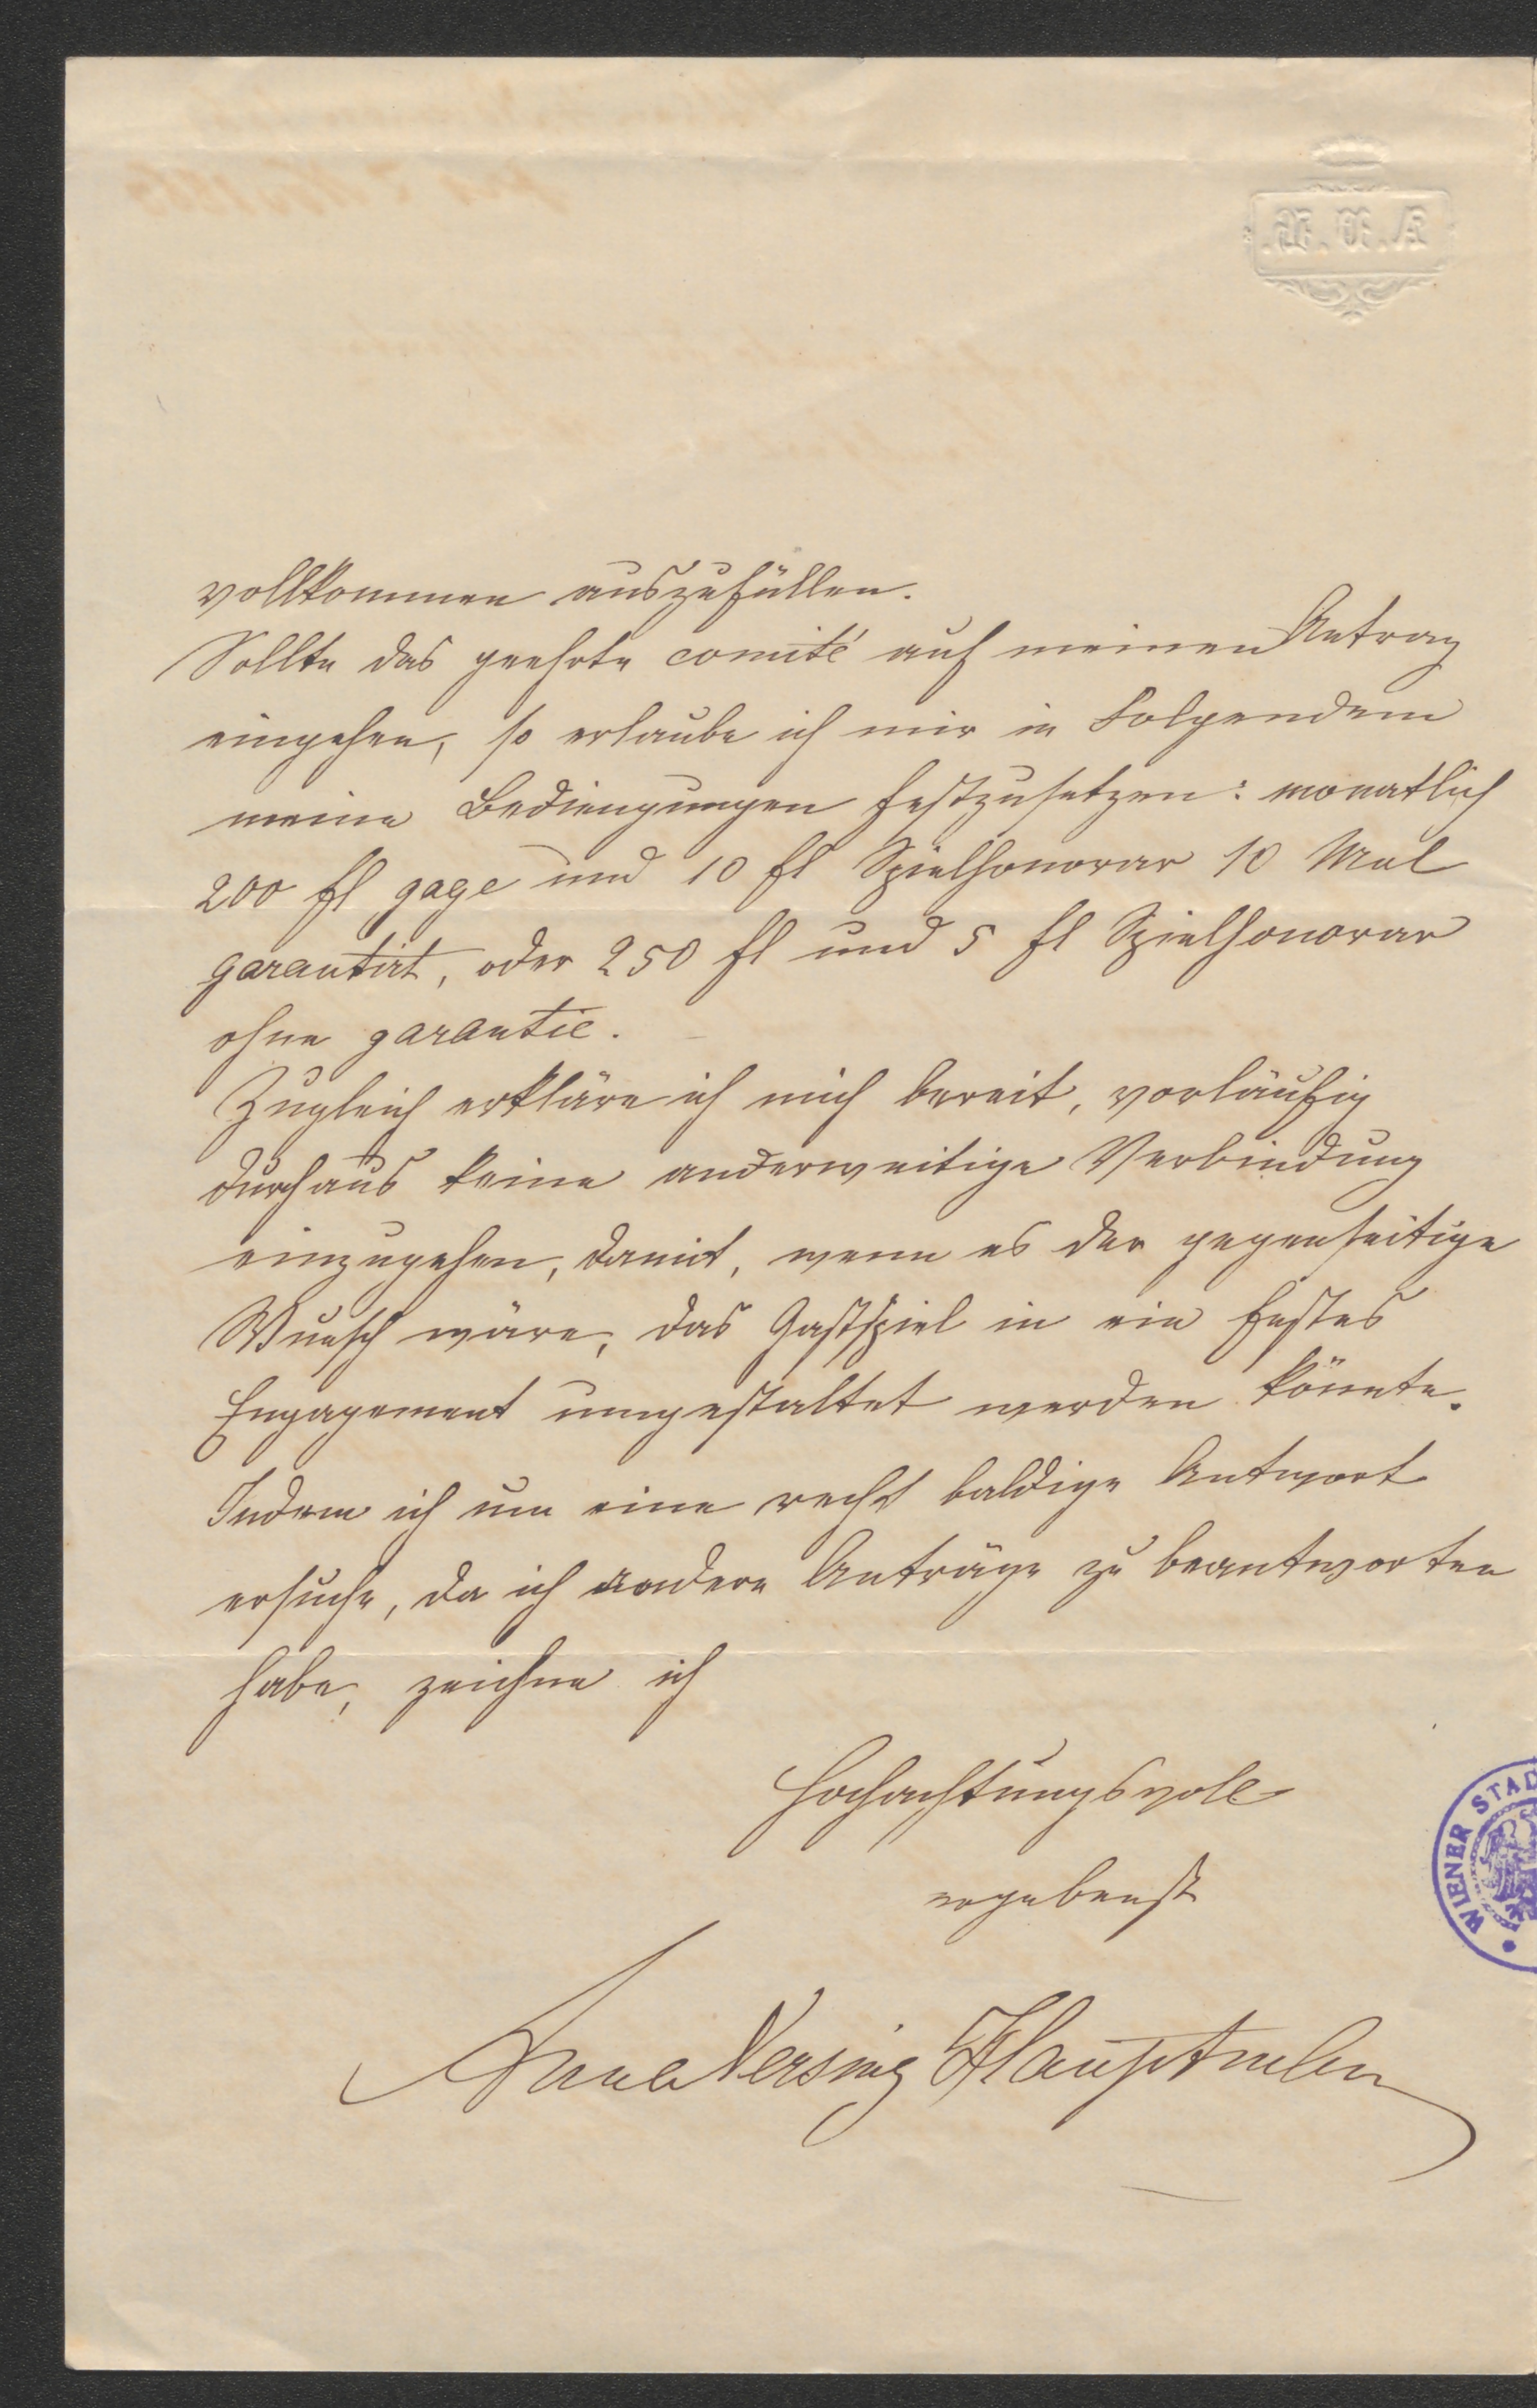 vollkommen auszufüllen.
Sollte das geehrte comité auf meinen Antrag
eingehen, so erlaube ich mir in Folgendem
meine Bedingungen festzusetzen: monatlich
200 fl gage und 10 fl Spielhonorar 10 Mal
garantirt, oder 250 fl und 5 fl Spielhonorar
ohne garantie.
Zugleich erkläre ich mich bereit, vorläufig
durchaus keine anderweitige Verbindung
einzugehen, damit, wenn es der gegenseitige
Wunsch wäre, das Gastspiel in ein festes
Engagement umgestaltet werden könnte.
Indem ich um eine recht baldige Antwort
ersuche, da ich andere Anträge zu beantworten
habe, zeichne ich
Hochachtungsvoll
ergebenst
Anna Versing Hauptmann
WIENER STAD